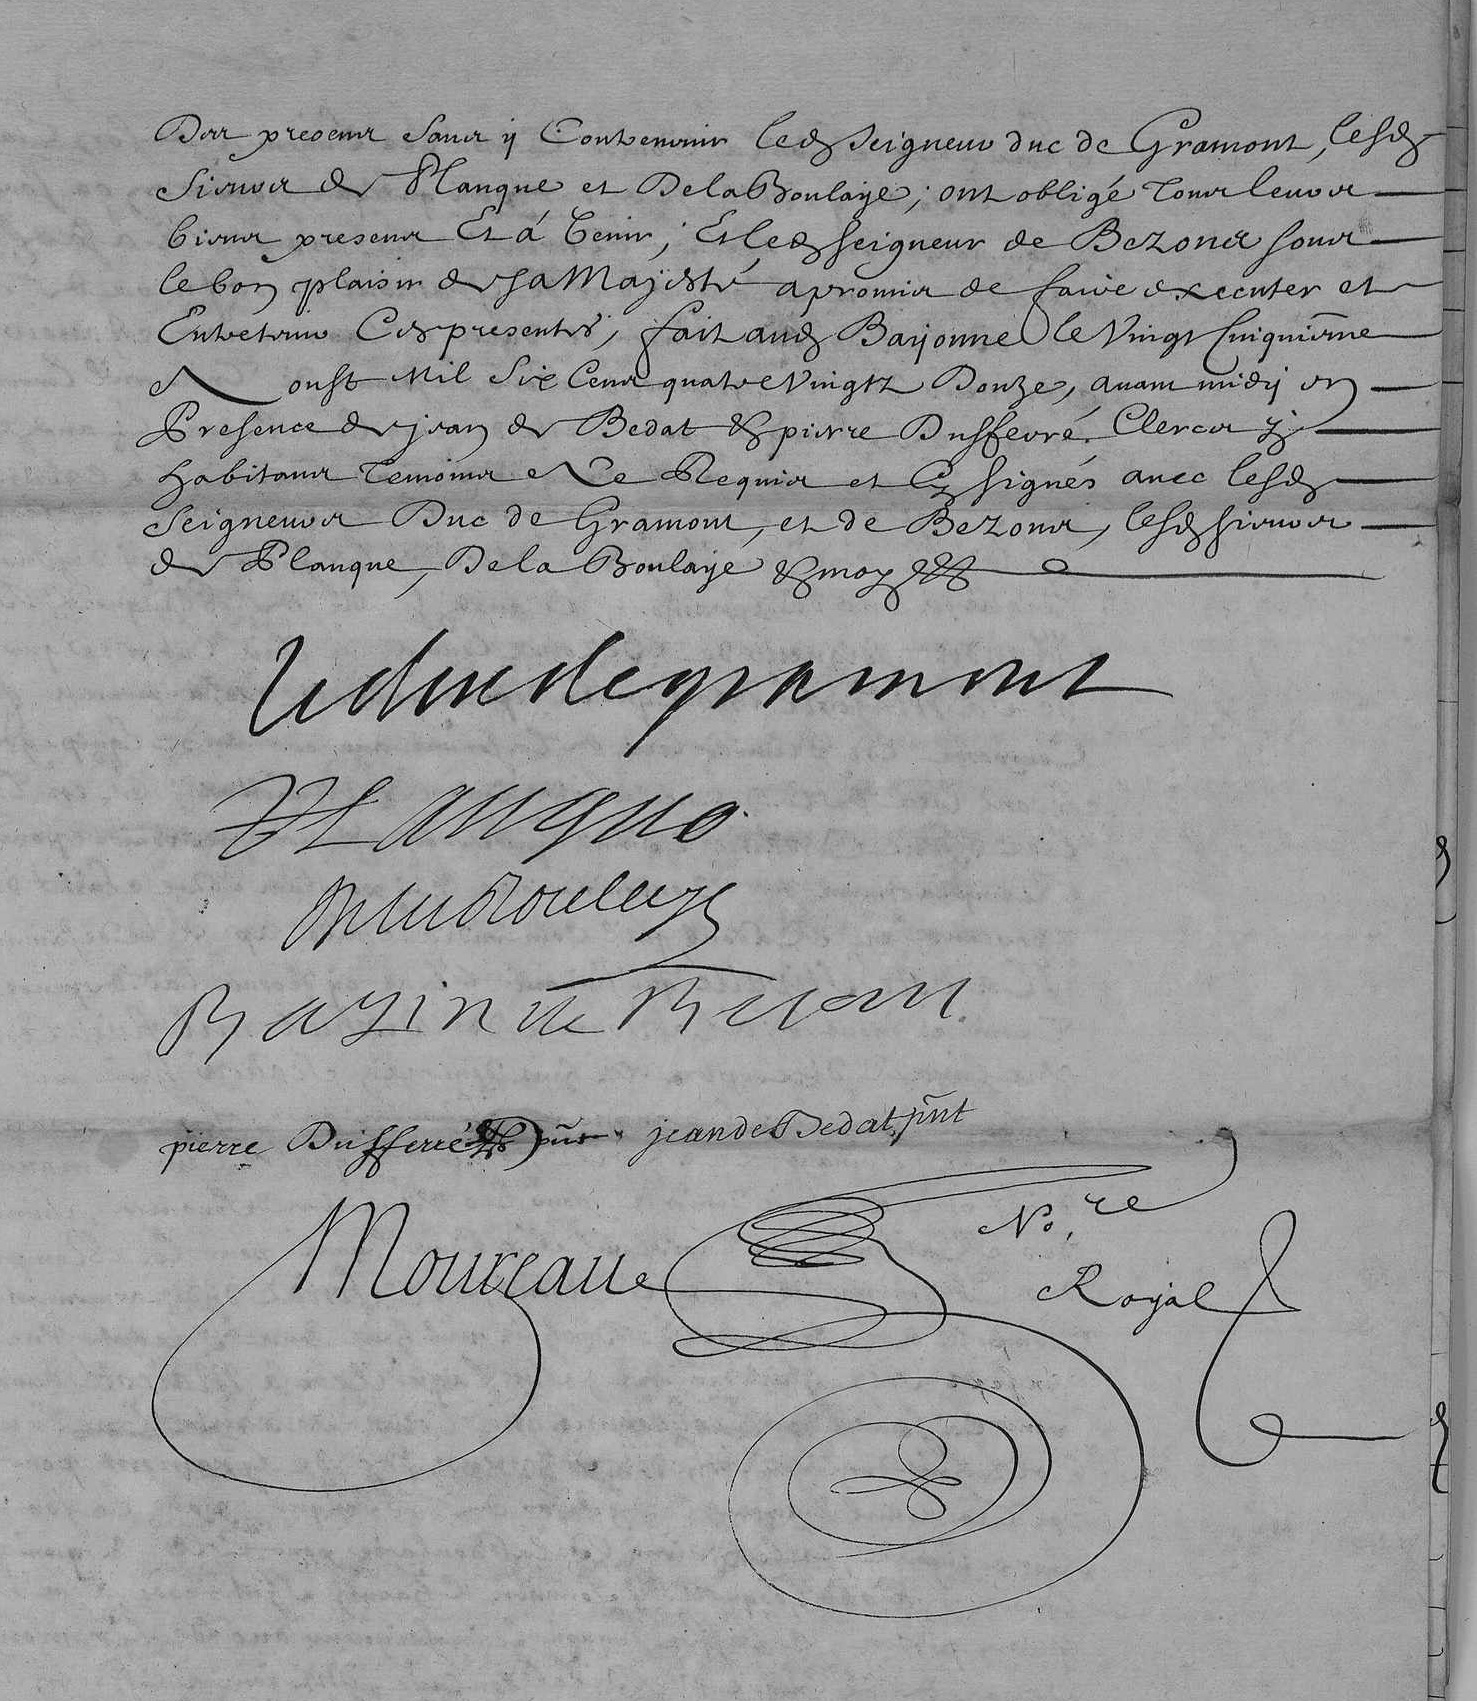 Par presens sans y Contrevenir led. seigneur duc de Gramont, lesd.
Sieurs de Planque et De la Boulaye; ont obligé tous leurs
biens presens Et á Venir; Et led. seigneur de Bezons sous
le bon plaisir de sa Majesté a promis de faire executer et
Entretenir Ces presentes, fait aud. Bayonne le Vingt Cinquiême
d'Aoust Mil Six Cens quatre Vingtz Douze, avant midy en
Presence de jean de Bedat & pierre Dufferré Clercs y
habitans temoins a Ce Requis et signés avec lesd.
Seigneurs Duc de Gramont, et de Bezons, lesd. sieurs
de Planque, De la Boulaye & moy
le duc de gramont
Planque
De la Boulaye
Bazin de Bezons
pierre Dufferré p̃nt jean de Bedat p̃nt
Moureau No.re
Royal